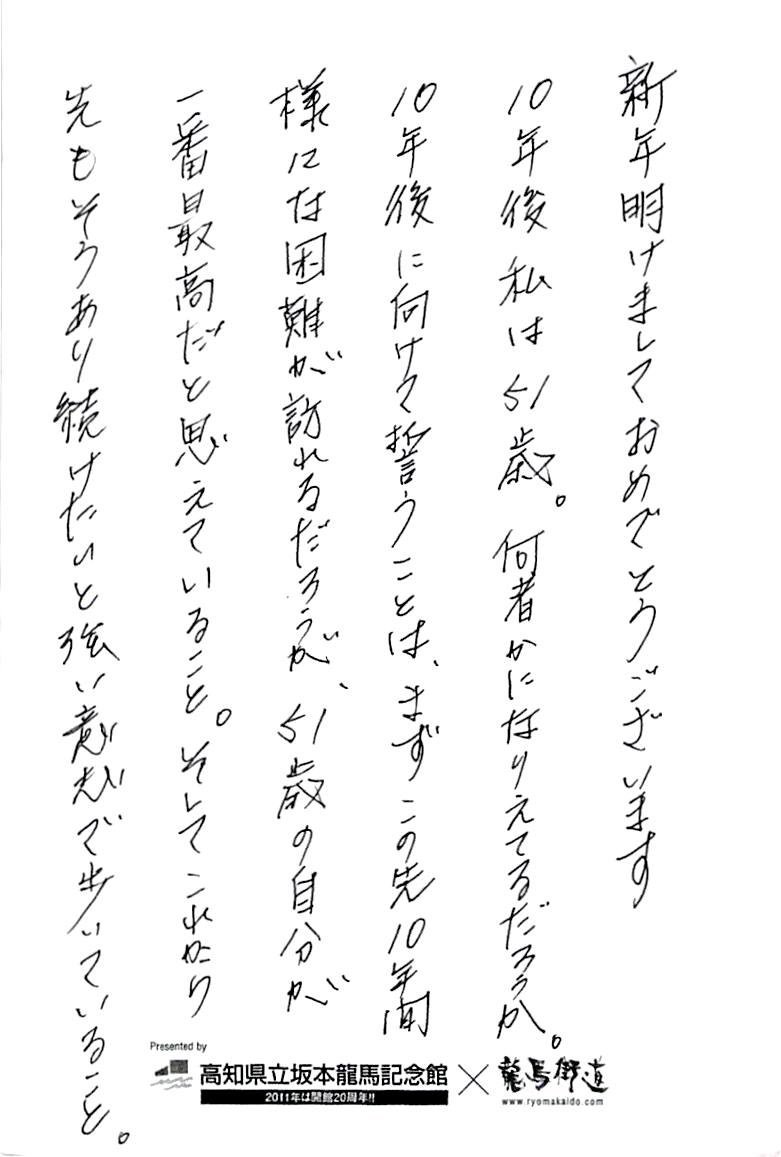 新年明けましておめでとうございます
10年後私は51歳。何者かになりえてるだろうか。
10年後に向けて誓うことは、まずこの先10年間
様にな困難が訪れるだろうが、51歳の自分が
一番最高だと思えていること。そしてこれから
先もそうあり続けたいと強い意志で歩いていること。
Presented by
高知県立坂本龍馬記念館
2011年は開館20周年!!
×
龍馬街道
www.ryomakaido.com